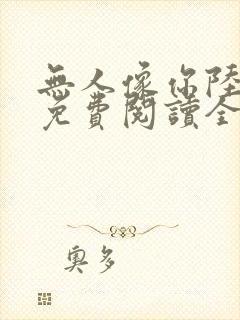 無人像你陸
免費閱讀全
奧多